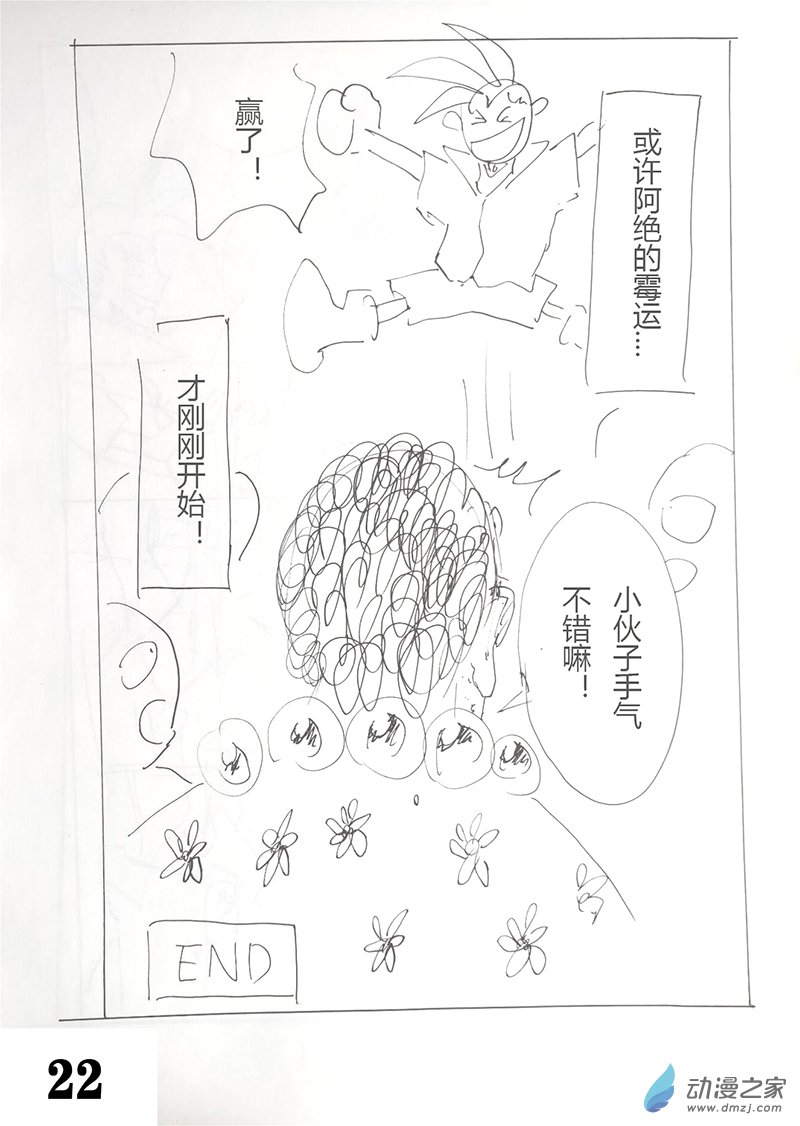 或许阿绝的霉运....
赢了！
小伙子手气
不错嘛！
才刚刚开始！
END
22
动漫之家
www.dmzj.com